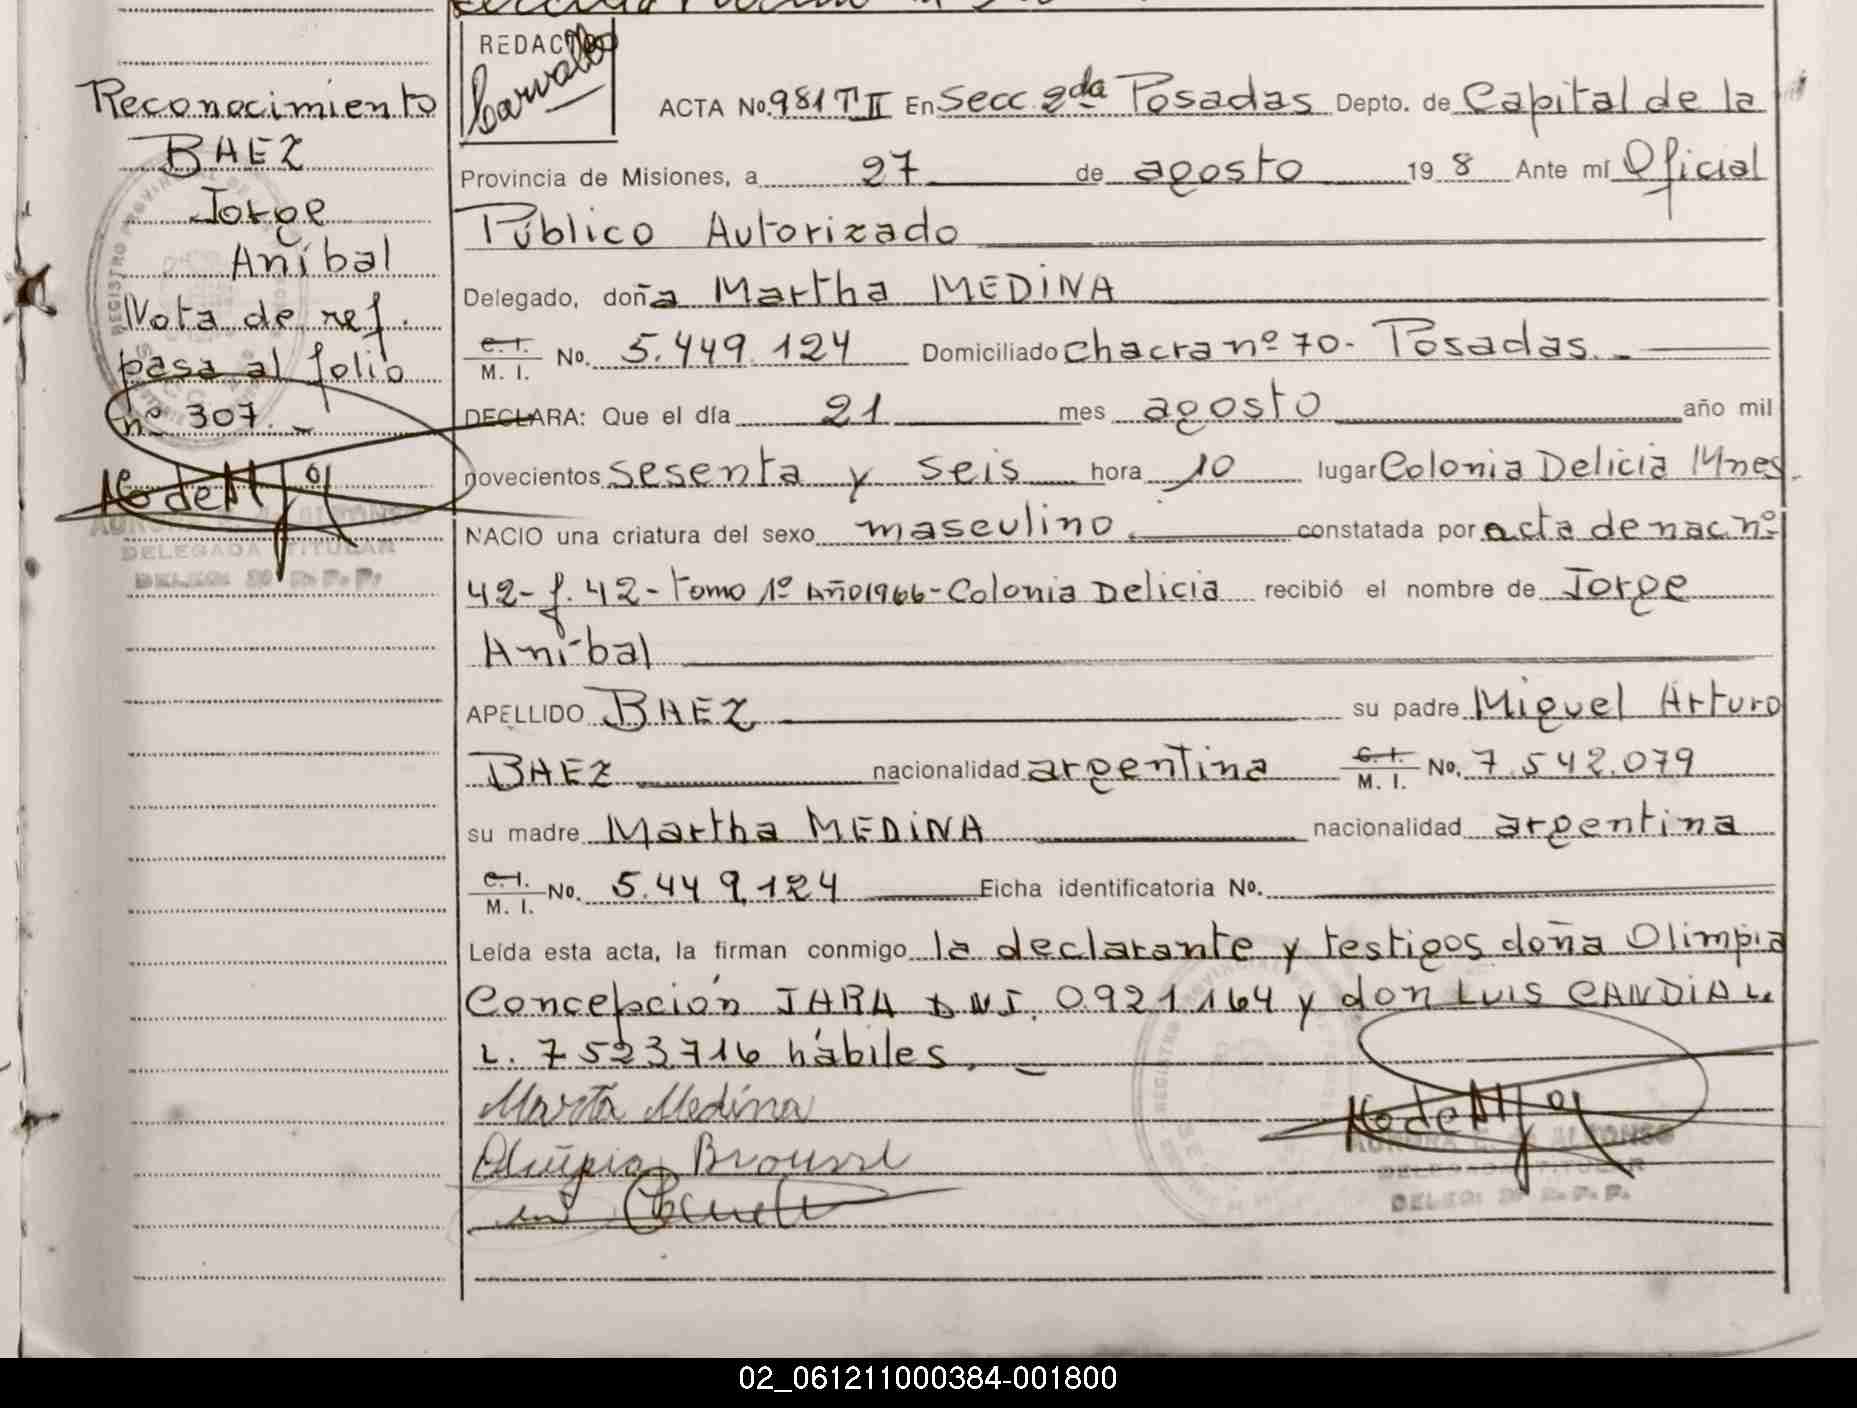 Reconocimiento
BAEZ
Jorge
Aníbal
Nota de ref.
pasa al folio
nº 307.
DELEGADA TITULAR
REDACTO
Carvallo
ACTA No. 981 TII En Secc. 2da Posadas Depto. de Capital de la
Provincia de Misiones, a 27 de agosto 19 8 Ante mí Oficial
Público Autorizado
Delegado, doña Martha MEDINA
C. I. / M. I. No. 5.449.124 Domiciliado chacra nº 70- Posadas.
DECLARA: Que el día 21 mes agosto año mil
novecientos sesenta y seis hora 10 lugar Colonia Delicia Mnes.
NACIO una criatura del sexo masculino constatada por acta de nac nº
42- f. 42- tomo 1º Año 1966- Colonia Delicia recibió el nombre de Jorge
Aníbal
APELLIDO BAEZ su padre Miguel Arturo
BAEZ nacionalidad argentina C. I. / M. I. No. 7.542.079
su madre Martha MEDINA nacionalidad argentina
C. I. / M. I. No. 5.449.124 Ficha identificatoria No.
Leída esta acta, la firman conmigo la declarante y testigos doña Olimpia
Concepción JARA DNI. 0.921.164 y don LUIS CANDIA L.
L. 7523.716 hábiles.
Marta Medina
DELEGADA TITULAR
02_061211000384-001800